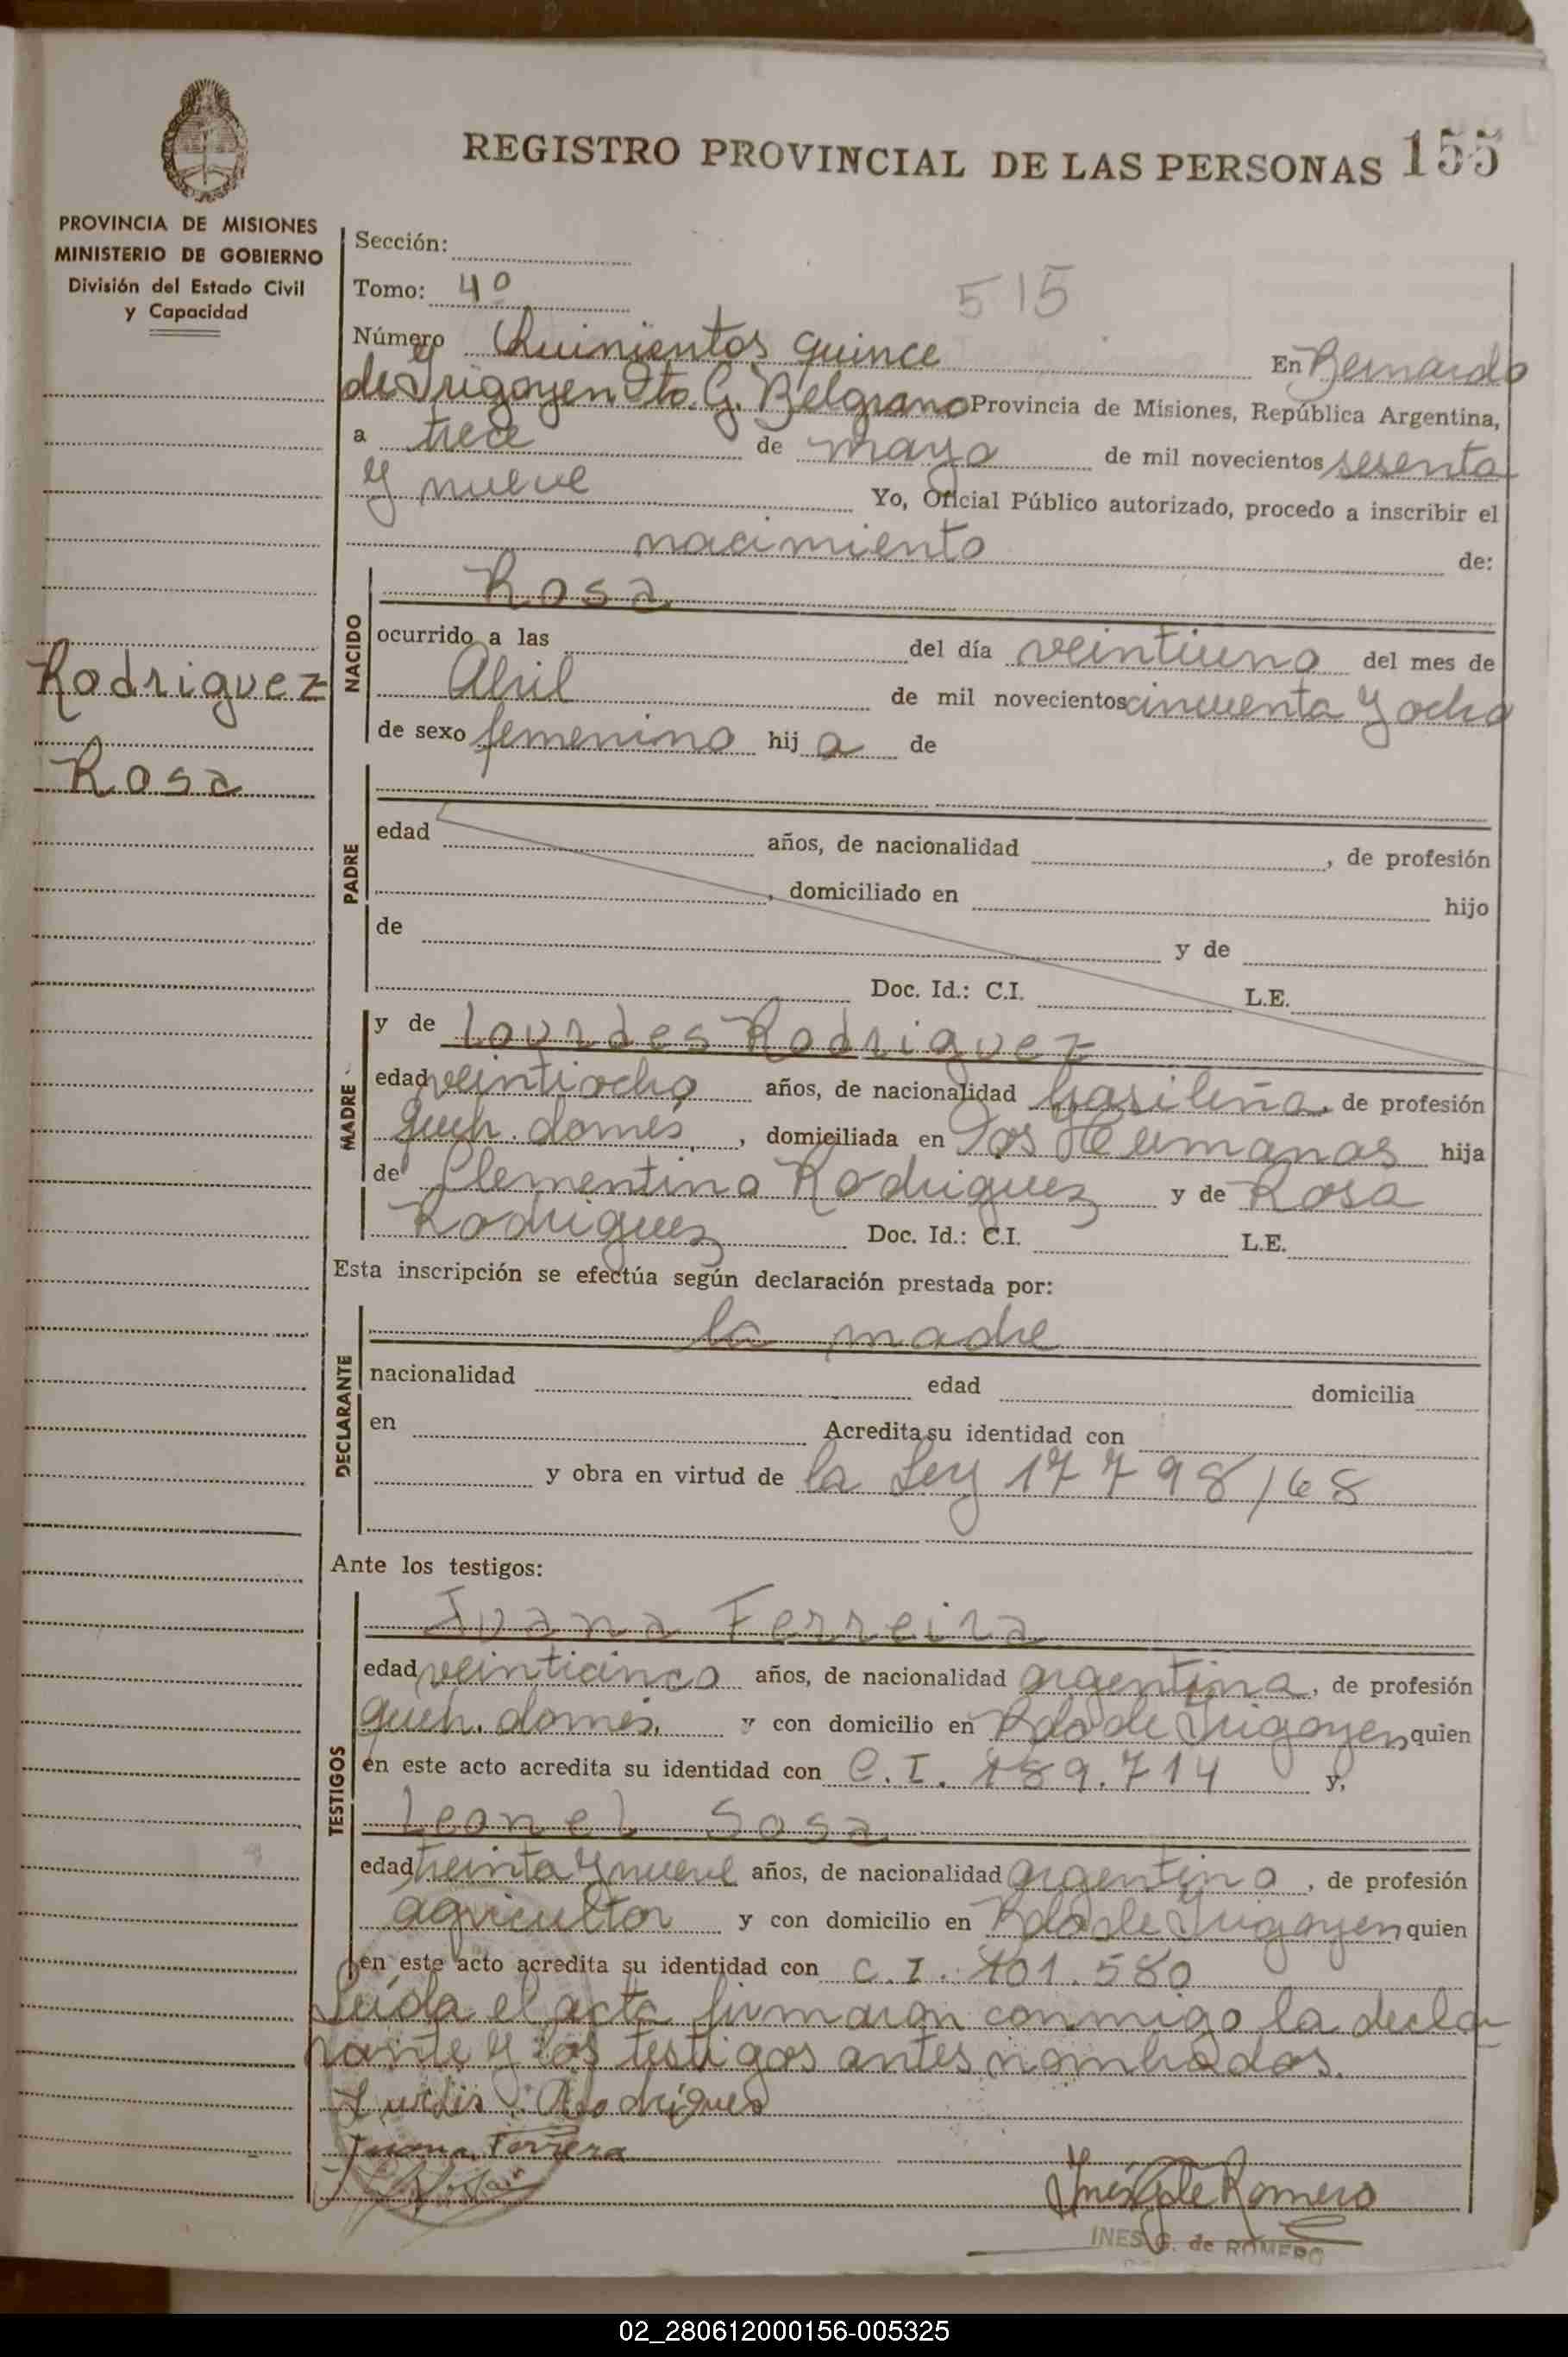 REGISTRO PROVINCIAL DE LAS PERSONAS 155
PROVINCIA DE MISIONES
MINISTERIO DE GOBIERNO
División del Estado Civil
y Capacidad
Rodriguez
Rosa
Sección:
Tomo: 4º
515
Número Quinientos quince En Bernardo
de Irigoyen Dto. G. Belgrano Provincia de Misiones, República Argentina,
a trece de mayo de mil novecientos sesenta
y nueve Yo, Oficial Público autorizado, procedo a inscribir el
nacimiento de:
NACIDO
Rosa
ocurrido a las del día veintiuno del mes de
Abril de mil novecientos cincuenta y ocho
de sexo femenino hij a de
PADRE
edad años, de nacionalidad , de profesión
, domiciliado en hijo
de y de
Doc. Id.: C.I. L.E.
MADRE
y de Lourdes Rodriguez
edad veintiocho años, de nacionalidad brasileña, de profesión
queh. domés. , domiciliada en Dos Hermanas hija
de Clementino Rodriguez y de Rosa
Rodriguez Doc. Id.: C.I. L.E.
Esta inscripción se efectúa según declaración prestada por:
DECLARANTE
la madre
nacionalidad edad domicilia
en Acredita su identidad con
y obra en virtud de la Ley 17798/68
Ante los testigos:
TESTIGOS
Juana Ferreira
edad veinticinco años, de nacionalidad argentina, de profesión
queh. domés. y con domicilio en Bdo de Irigoyen quien
en este acto acredita su identidad con C.I. 189.714 y,
Leonel Sosa
edad treinta y nueve años, de nacionalidad argentino, de profesión
agricultor y con domicilio en Bdo de Irigoyen quien
en este acto acredita su identidad con C.I. 101.580
Leída el acta firmaron conmigo la decla
rante y los testigos antes nombrados.
Lurdis Rodrigues
Juana Ferrera
Inés G de Romero
INES G. de ROMERO
02_280612000156-005325